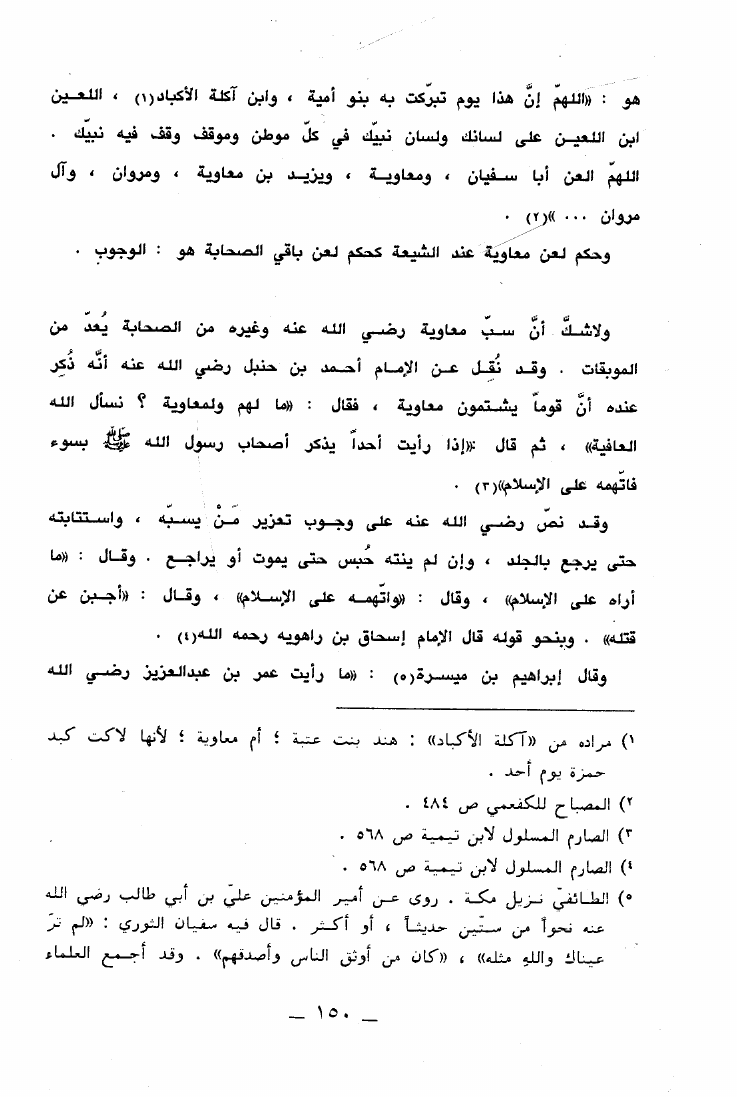 هو : «اللهمّ إنَّ هذا يوم تبرّكت به بنو أمية ، وابن آكلة الأكباد(١) ، اللعين
ابن اللعيـن على لسانك ولسان نبيّك في كلّ موطن وموقف وقف فيه نبيّك .
اللهمّ العن أبا سـفيان ، ومعاويـة ، ويزيـد بن معاوية ، ومروان ، وآل
مروان ... »(٢) .
وحكم لعن معاوية عند الشيعة كحكم لعن باقي الصحابة هو : الوجوب .
ولاشـكَّ أنَّ سـبّ معاوية رضـي الله عنه وغيره من الصحابة يُعدّ من
الموبقات . وقـد نُقِـل عـن الإمـام أحـمد بن حنبل رضـي الله عنه أنَّه ذُكِر
عنده أنَّ قوماً يشـتمون معاوية ، فقال : «ما لهم ولمعاوية ؟ نسأل الله
العافية» ، ثم قال :«إذا رأيت أحداً يذكر أصحاب رسول الله ﷺ بسوء
فاتّهمه على الإسلام»(٣) .
وقـد نصّ رضـي الله عنه على وجـوب تعزير مَـنْ يسـبّه ، واسـتتابته
حتى يرجع بالجلد ، وإن لم ينته حُبس حتى يموت أو يراجـع . وقـال : «ما
أراه على الإسلام» ، وقال : «واتّهمـه على الإسـلام» ، وقـال : «أجـبن عن
قتله» . وبنحو قوله قال الإمام إسحاق بن راهويه رحمه الله(٤) .
وقال إبراهيم بن ميسـرة(٥) : «ما رأيت عمر بن عبدالعزيز رضـي الله
١) مراده من «آكلة الأكباد» : هند بنت عتبة ؛ أم معاوية ؛ لأنها لاكت كبد
حمزة يوم أحد .
٢) المصباح للكفعمي ص ٤٨٤ .
٣) الصارم المسلول لابن تيمية ص ٥٦٨ .
٤) الصارم المسلول لابن تيمية ص ٥٦٨ .
٥) الطـائفيّ نـزيل مكـة . روى عـن أمير المؤمنين عليّ بن أبي طالب رضي الله
عنه نحواً من سـتّين حديثـاً ، أو أكثـر . قال فيه سفيان الثوري : «لم ترَ
عيناك واللهِ مثله» ، «كان من أوثق الناس وأصدقهم» . وقد أجمـع العلماء
_ ١٥٠ _